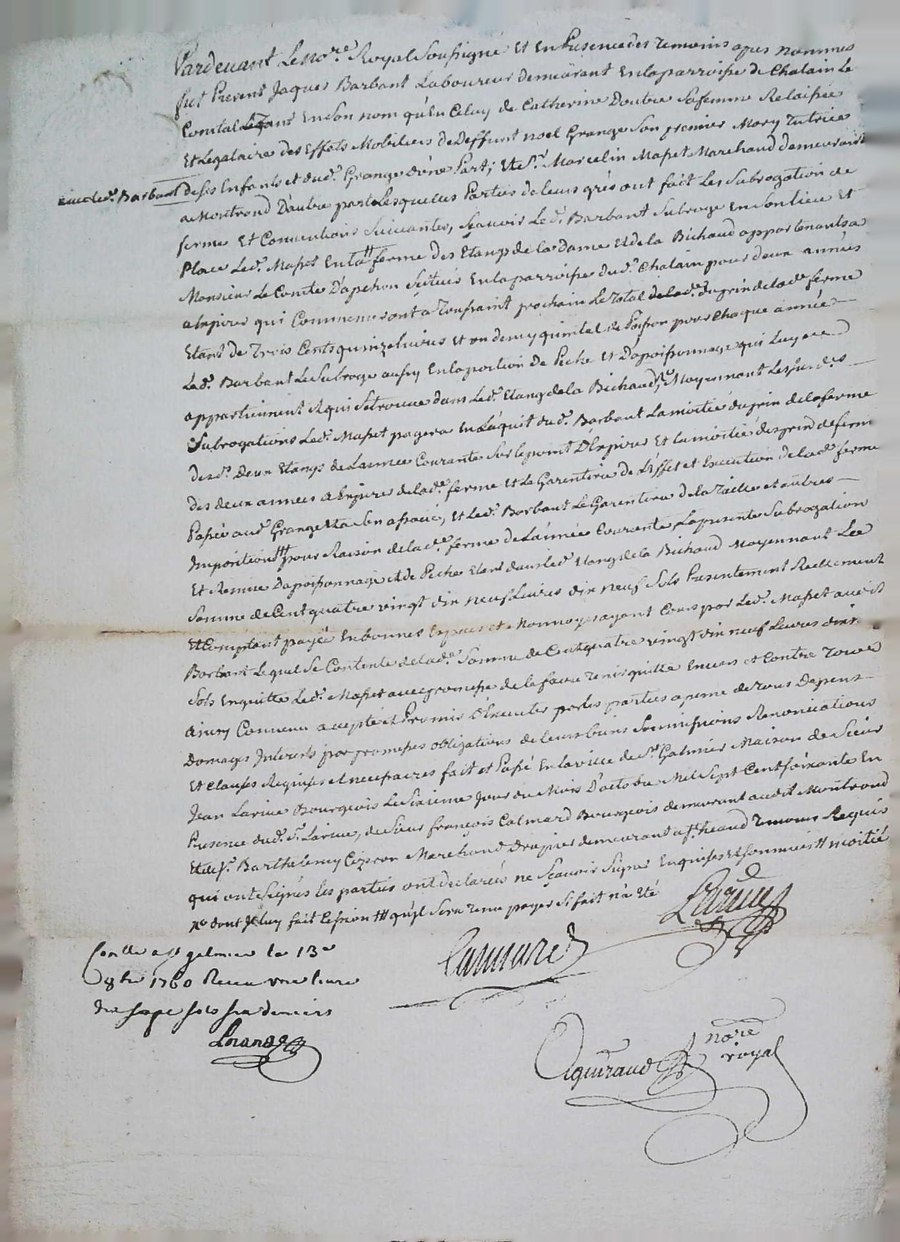 Pardevant Le No.re Royal Soussigné Et En Presence des temoins apres nommés
fut Present Jaques Barbant Laboureur demeurant En la parroisse de Chalain Le
Comtal tant En Son nom qu'En Celuy de Catherine Doutre Sa femme Relaissée
Et Legataire des Effets Mobiliers de Deffunt noel Grange Son premier Mary tutrice
de ses Enfants et du d. Grange d'une Part; Et S.r Marcelin Maset Marchand demeurant
a Montrond D'autre part Lesquelles Parties de leurs grés ont fait Les Subrogation de
ferme Et Conventions Suivantes, Sçavoir Le d. Barbant Subroge En Son lieu Et
Place Le d. Maset En la ferme des Etangs de la Dame Et de la Bichaud appartenants a
Monsieur Le Comte D'apchon Scitués En la parroisse du d. Chalain pour deux années
a Expirer qui Commenceront a Toussaint prochain Le Total du prix de la d.e ferme
Etant de Trois Cents quinze livres et un demy quintal de Poisson pour Chaque année
Le d. Barbant Le Subroge aussy En la portion de Peche Et D'apoisonnage qui Luy
appartiennent Et qui Se trouve dans Le d. Etang de la Bichaud, Moyennant Les Susd.es
Subrogations Le d. Maset payera En L'aquit du d. Barbant La moitié du prix de la ferme
des d. deux Etangs de L'année Courante Sur le point D'Expirer Et la moitié des prix de ferme
des deux années a Expirer de la d.e ferme Et Le Garentira de L'Effet et Execution de la d.e ferme
Passée aud. Grange Et a Son associé, Et Le d. Barbant Le Garentira de la Taille et autres
Impositions pour Raison de la d.e ferme de L'année Courante La presente Subrogation
Et Remise D'apoisonnage Et de Peche Etant dans Le d. Etang de la Bichaud Moyennant La
Somme de Cent quatre vingt dix neuf Livres dix neuf Sols Presentement Reellement
Et Comptant payée En bonnes Especes et Monnoye ayant Cours par Le d. Maset aud.
Barbant Lequel Se Contente de la d.e Somme de Cent quatre vingt dix neuf Livres dix
Sols En quitte Le d. Maset avec promesse de le faire tenir quitte Envers et Contre Tous
Ainsy Convenu accepté et Promis D'Executer par les parties a peine de tous Depens
Domages Interets par promesses obligations de leurs biens Soumissions Renonciations
Et Clauses Requises et necessaires fait et Passé En la ville de S.t Galmier Maison de Sieur
Jean Larue Bourgeois Le Sixieme Jour du Mois D'octobre Mil Sept Cent Soixante En
Presence du d. S.r Larue, de Sieur françois Calmard Bourgeois demeurant audit Montrond
Et de S.r Barthelemy Marchand Drapier demeurant a S.t heand temoins Requis
qui ont Signés les parties ont declarées ne Sçavoir Signer Enquises Et Sommées moitié
dont Il luy fait Cession qu'il Sera tenu payer Si fait n'a Eté
Larue
Calmard
Con.lle a S.t galmier le 13.e
8bre 1760 Receu une livre
dix sept sols six deniers
Aguiraud no.re
royal